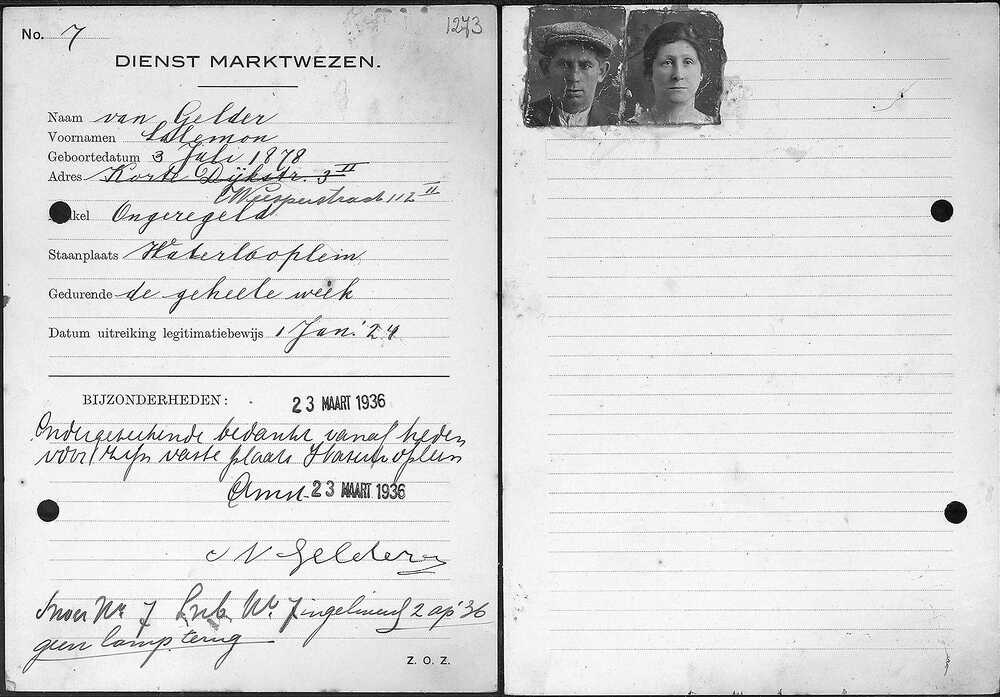 No. 7
1273
DIENST MARKTWEZEN.
Naam van Gelder
Voornamen Salemon
Geboortedatum 3 Juli 1878
Adres Korte Dijkstr. 3 II
Weesperstraat 112 II
kel Ongeregeld
Staanplaats Waterlooplein
Gedurende de geheele week
Datum uitreiking legitimatiebewijs 1 Jan. '24
BIJZONDERHEDEN:
23 MAART 1936
Ondergeteekende bedankt vanaf heden
voor zijn vaste plaats Waterlooplein
Amst. 23 MAART 1936
v Gelder
Snoer No. 7 No. 7 ingeleverd 2 ap '36
geen lamp terug
Z. O. Z.